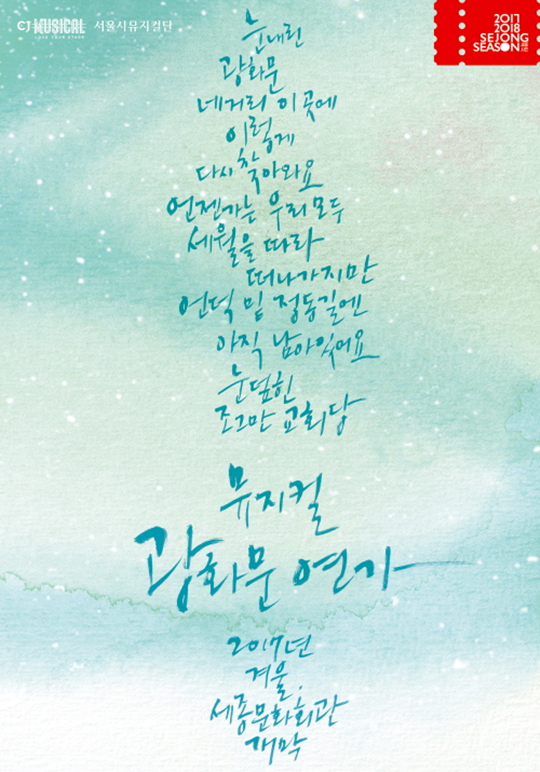 CJ MUSICAL
LOVE YOUR STAGE
서울시뮤지컬단
2017
2018
SEJONG
SEASON
눈내린
광화문
네거리 이곳에
이렇게
다시 찾아와요
언젠가는 우리모두
세월을 따라
떠나가지만
언덕 밑 정동길엔
아직 남아있어요
눈덮힌
조그만 교회당
뮤지컬
광화문 연가
2017년
겨울,
세종문화회관
개막